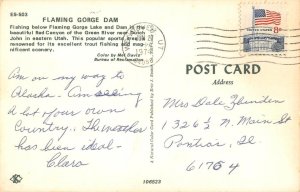 ES-503
FLAMING GORGE DAM
Fishing below Flaming Gorge Lake and Dam in the
beautiful Red Canyon of the Green River near Dutch
John in eastern Utah. This popular sports area is
renowned for its excellent trout fishing and mag-
nificent scenery.
Color by Mel Davis
Bureau of Reclamation
Am on my way to
Alaska. Am seeing
a lot of our own
Country. The weather
has been ideal -
Clara
POST CARD
Address
Mrs Dale
1326 1/2 N. Main St
Pontiac, Ill.
61764
106523